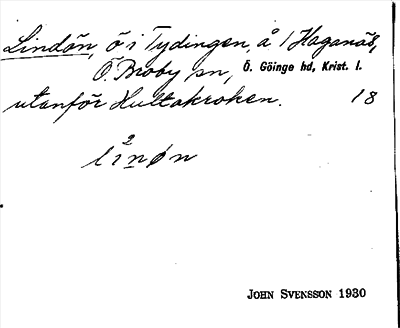 Lindön, ö i Tydingen, å 1 Haganäs,
Ö. Broby sn, Ö. Göinge hd, Krist. l.
utanför Hultakroken. 18
2
linøn
JOHN SVENSSON 1930